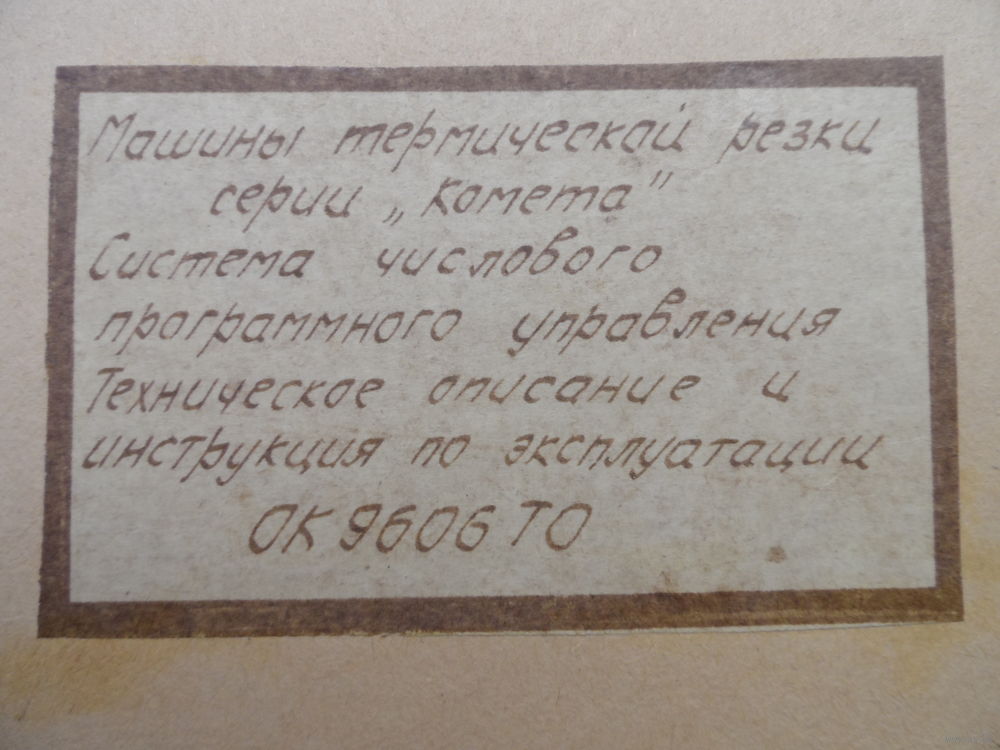 Машины термической резки
серии „Комета”
Система числового
программного управления
Техническое описание и
инструкция по эксплуатации
ОК 9606 ТО